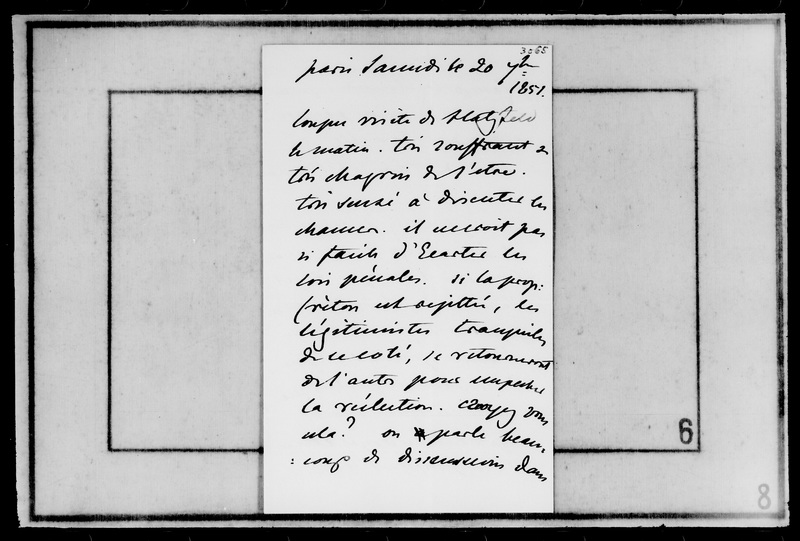 3065
paris Samedi le 20 7bre
1851.
longue visite de Hatzfeld
le matin. très souffrant et
très chagrin de l'être.
très sensé à discuter les
chances. il ne croit pas
si facile d'écarter les
lois pénales. si la prop:
Créton est rejettée, les
légitimistes tranquiles
de ce coté, se retourneront
de l'autre pour empecher
la réélection. croyez vous
cela? on parle beau-
:coup de dissensions dans
6
8